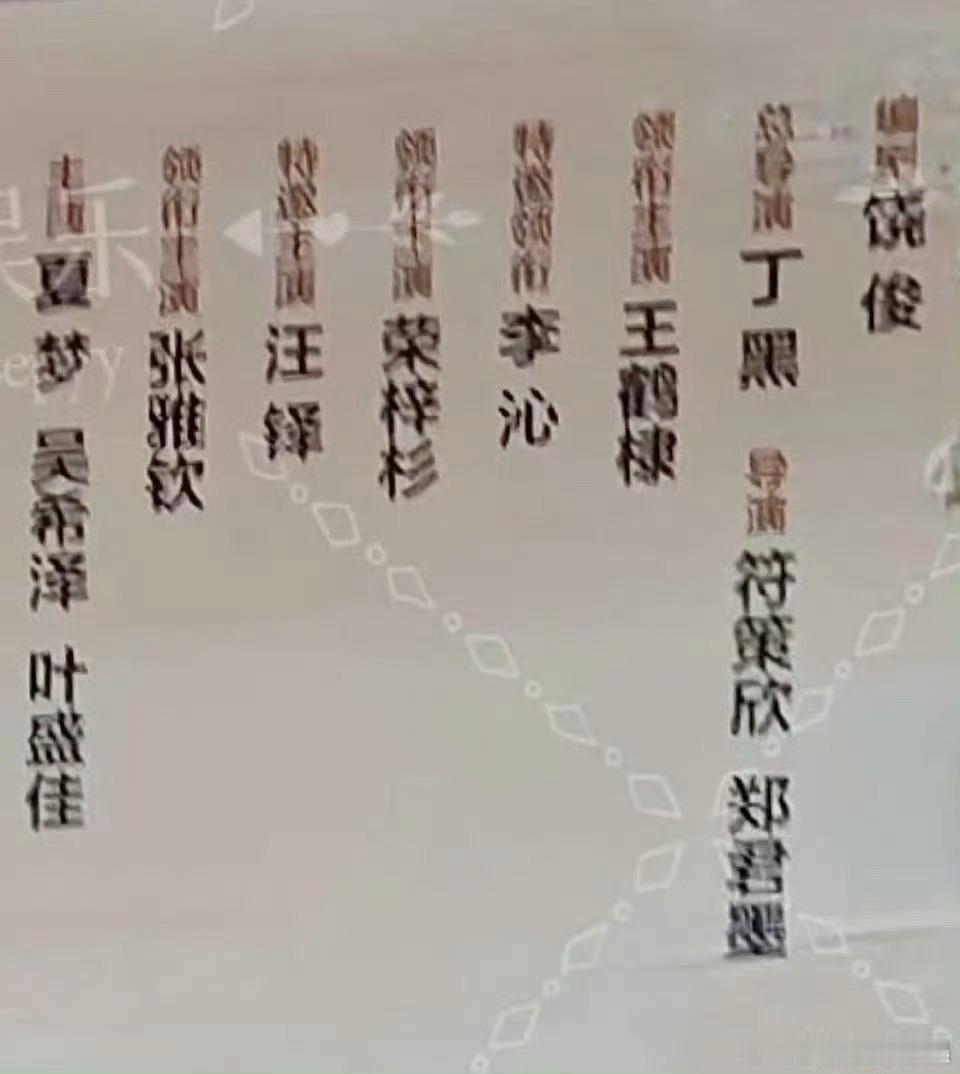 编剧
饶俊
总导演
丁黑
导演
符策欣
郑君墨
领衔主演
王鹤棣
特邀领衔
李沁
领衔主演
荣梓杉
特邀主演
汪铎
领衔主演
张雅钦
主演
夏梦
吴希泽
叶盛佳
娱乐